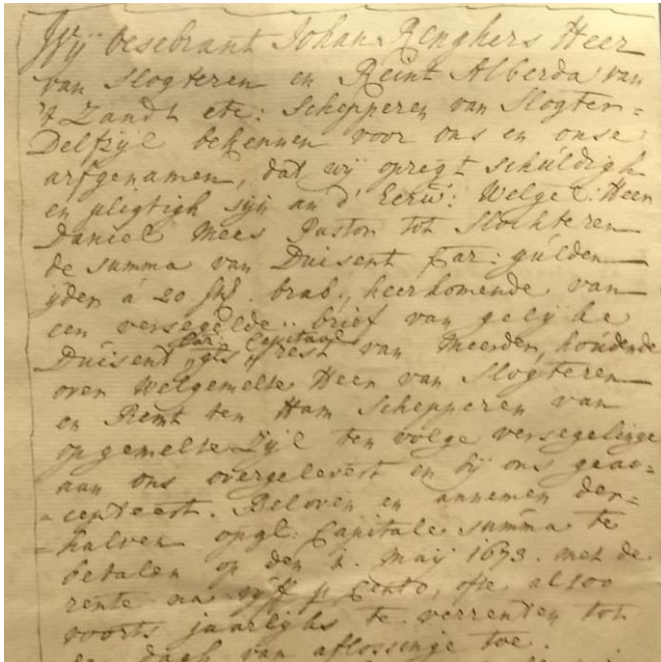 Wij Osebrant Johan Renghers Heer
van Slogteren en Reint Alberda van
't Zandt etc: Schepperen van Slogter=
Delfzijl bekennen voor ons en onse
arfgenamen, dat wij opregt schúldigh
en pligtigh sijn an d' Eerw: Welgel: Heer
Daniel Mees Pastor tot Slochteren
de summa van Duisent Car: gúlden
ijder á 20 st brab., heerkomende van
een versegelde brief van gelijke
Duisent Car gls Capitael rest van meerder, houdende
over Welgemelte Heer van Slogteren
en Reint ten Ham Schepperen van
opgemelte Zijl ten volge versegelinge
aan ons overgelevert en bij ons geac=
=cepteert. Beloven en annemen der=
=halven opgl: Capitale summa te
betalen op den 1. Maij 1673. met de
rente na vijff p Cento, ofte alsoo
voorts jaarlijks te verrenten tot
den dagh van aflossinge toe.